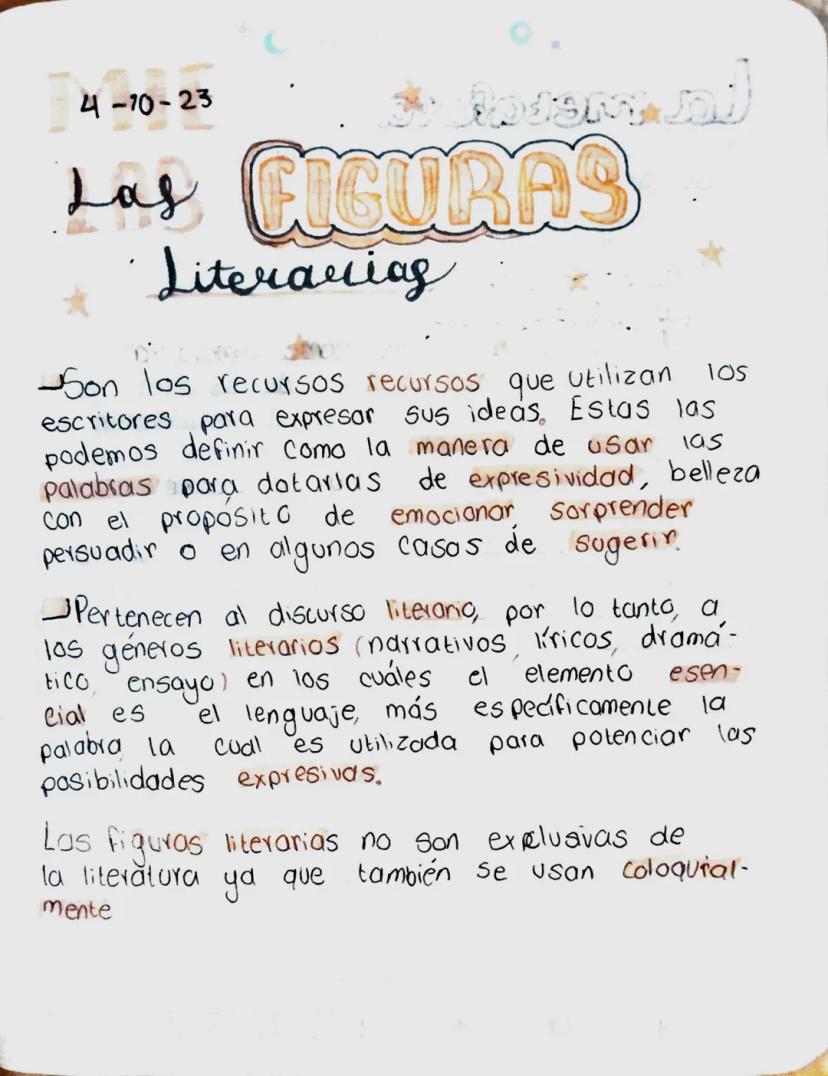 4-10-23
Las FIGURAS
Literarias
Son los recursos recursos que utilizan los
escritores para expresar sus ideas. Estas las
podemos definir como la manera de usar las
palabras para dotarlas de expresividad, belleza
con el propósito de emocionar, sorprender
persuadir o en algunos casos de sugerir.
Pertenecen al discurso literario, por lo tanto, a
los géneros literarios (narrativos, líricos, dramá-
tico, ensayo) en los cuáles el elemento esen-
cial es el lenguaje, más específicamente la
palabra, la cual es utilizada para potenciar las
posibilidades expresivas.
Las figuras literarias no son exclusivas de
la literatura ya que también se usan coloquial-
mente